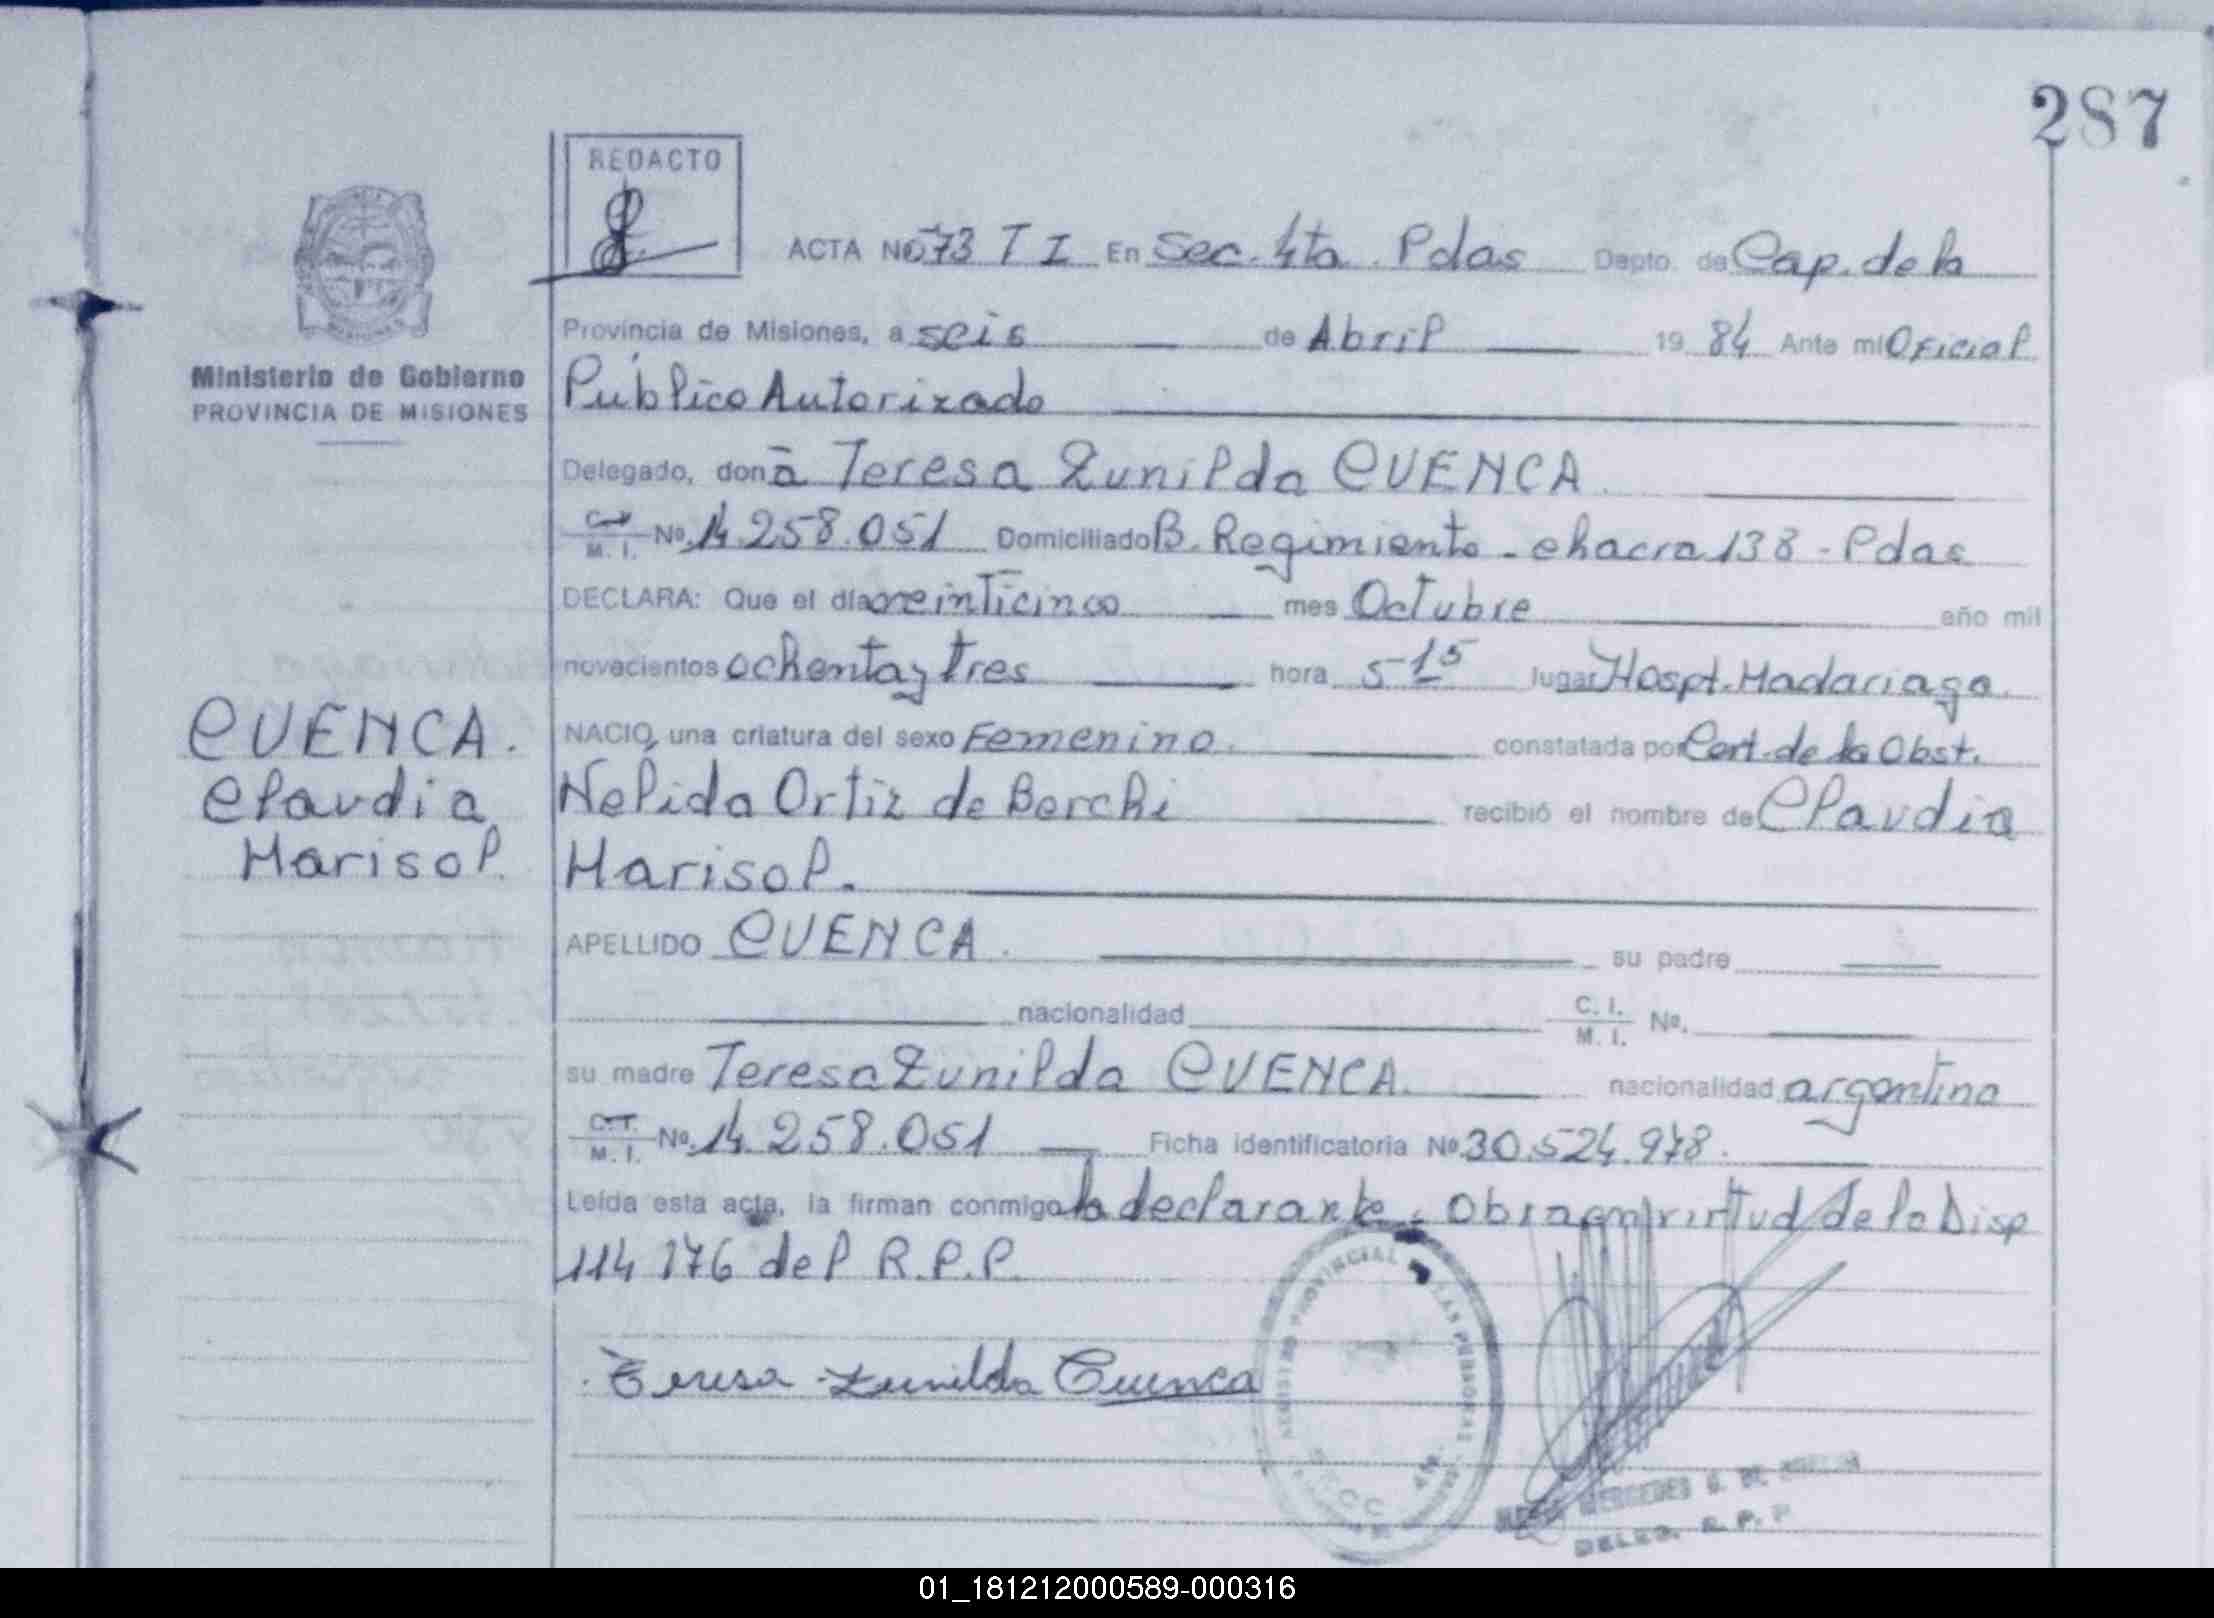 287
REDACTO
ACTA Nº 073 T I En Sec. 4ta. Pdas Depto. de Cap. de la
Provincia de Misiones, a seis de Abril 19 84 Ante mi Oficial
Ministerio de Gobierno
PROVINCIA DE MISIONES
Público Autorizado
Delegado, don ā Teresa Zunilda CUENCA.
M. I. Nº 14.258.051 Domiciliado B. Regimiento - chacra 138 - Pdas
DECLARA: Que el día veinticinco mes Octubre año mil
novecientos ochenta y tres hora 5-15 lugar Hospt. Madariaga.
CUENCA.
Claudia
Marisol.
NACIO, una criatura del sexo Femenino. constatada por Cert. de la Obst.
Nelida Ortiz de Berchi recibió el nombre de Claudia
Marisol.
APELLIDO CUENCA. su padre
nacionalidad C. I. M. I. Nº.
su madre Teresa Zunilda CUENCA. nacionalidad argentina
C. I. M. I. Nº. 14.258.051 Ficha identificatoria Nº 30.524.978.
Leída esta acta, la firman conmigo la declarante. Obra en virtud de la Disp
114 176 del R.P.P.
Teresa Zunilda Cuenca
PROVINCIAL LAS PERSONAS
MERCEDES G. DE
DELEG. R. P. P
01_181212000589-000316